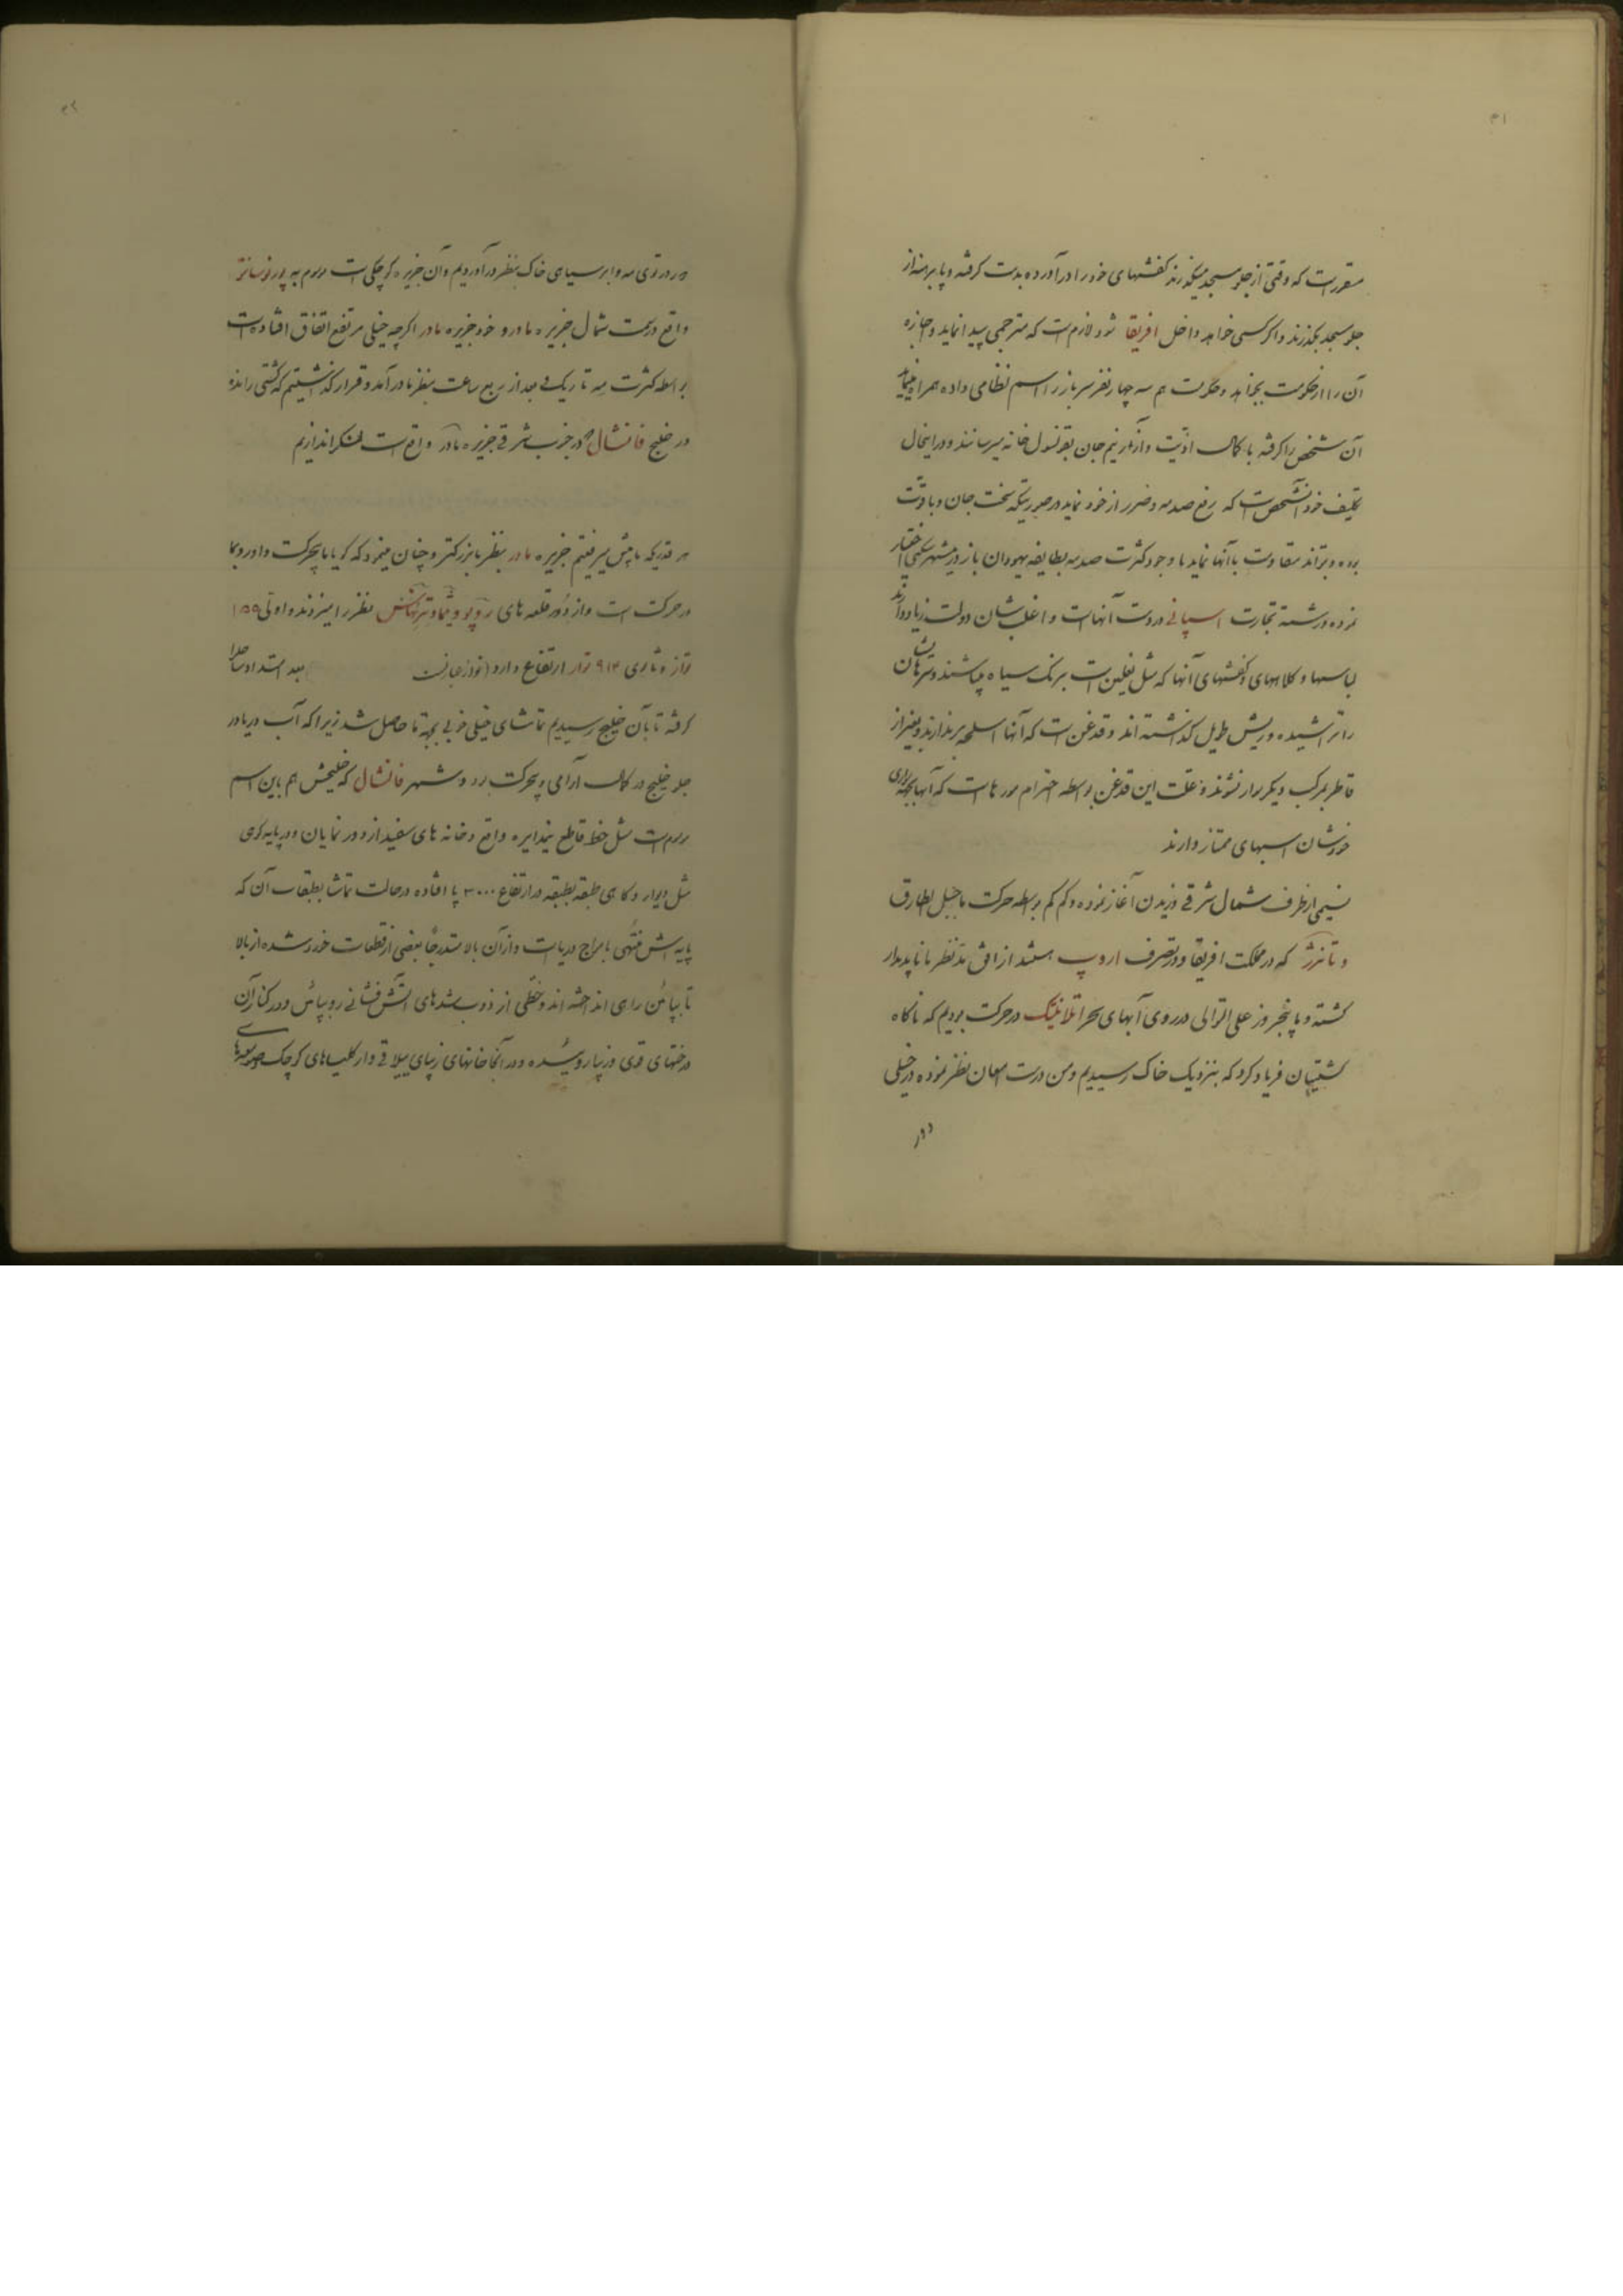 ۳۱
مقرر است که وقتی از جلو مسجد میگذرند کفشهای خود را درآورده بدست گرفته و پا برهنه از
جلو مسجد بگذرند و اگر کسی خواهد داخل افریقا شود لازم است که مترجمی پیدا نماید و اجازه
آن را از حکومت بخواهد و حکومت هم سه چهار نفر سرباز را اسم نظامی داده همراه مینماید
آن شخص را گرفته با کمال اذیت و آزار نیم جان بقونسول خانه میرسانند و در اینحال
تکلیف خود آنشخص است که رفع صدمه و ضرر از خود نماید در صورتیکه سخت جان و با قوت
بوده و بتواند مقاومت با آنها نماید با وجود کثرت صدمه بطایفه یهودان باز در این شهر سکنی اختیار
نموده و رشته تجارت اسپانی در دست آنهاست و اغلب شان دولت زیاد دارند
لباسها و کلاههای و کفشهای آنها که مثل نعلین است برنگ سیاه میباشند و سرهاشان
را تراشیده و ریش طویل گذاشته اند و قدغن است که آنها اسلحه برندارند و بغیر از
قاطر بمرکب دیگر سوار نشوند و علت این قدغن بواسطه احترام مورها است که آنها بجهة سواری
خودشان اسبهای ممتاز دارند
نسیمی از طرف شمال شرقی وزیدن آغاز نموده و کم کم بواسطه حرکت ما جبل الطارق
و تانژر که در مملکت افریقا و در تصرف اروپ هستند از افق مد نظر ما ناپدیدار
گشته و با پنجروز علی التوالی در روی آبهای بحر اتلانتیک در حرکت بودیم که ناگاه
کشتیبان فریاد کرد که بنزدیک خاک رسیدیم و من درست امعان نظر نموده در خیلی
دور
۳۲
دور در توی مه و ابر سیاهی خاک بنظر در آوردیم و آن جزیره کوچکی است موسوم به پورتوسانتو
واقع در سمت شمال جزیره مادر و خود جزیره مادر اگرچه خیلی مرتفع اتفاق افتاده است
بواسطه کثرت مه تاریک و بعد از ربع ساعت بنظر ما در آمد و قرار گذاشتیم که کشتی رانده
در خلیج فانشال که در جنوب شرقی جزیره مادر واقع است لنگر اندازیم
هر قدریکه ما پیش میرفتیم جزیره مادر بنظر ما بزرگتر و چنان مینمود که گویا ما بیحرکت و او رو بما
در حرکت است و از دور قلعه های نظر را میزدند و اولی ۱۵۵
تواز و ثانوی ۹۱۴ تواز ارتفاع دارد بعد امتداد ساحل را
گرفته تا بآن خلیج رسیدیم تماشای خیلی خوبی بجهة ما حاصل شد زیرا که آب دریا در
جلو خلیج در کمال آرامی و بیحرکت بود و شهر فانشال که خلیجش هم باین اسم
موسوم است مثل خط قاطع نیمدایره واقع و خانه های سفید از دور نمایان و در پایه کوهی
مثل دیوار و گاهی طبقه بطبقه در ارتفاع ۳۰۰۰ پا افتاده در حالت تماشا بطبقات آن که
پایه اش منتهی بامواج دریا است و از آن بالا متدرجاً بعضی از قطعات خورد شده از بالا
تا بپائین راهی انداخته اند و خطی از ذوب شدهای آتش فشانی رو بپائین و در کنار آن
درختهای قوی و زیبا روئیده و در آنجا خانهای زیبای ییلاقی وار کلیساهای کوچک صومعه ها